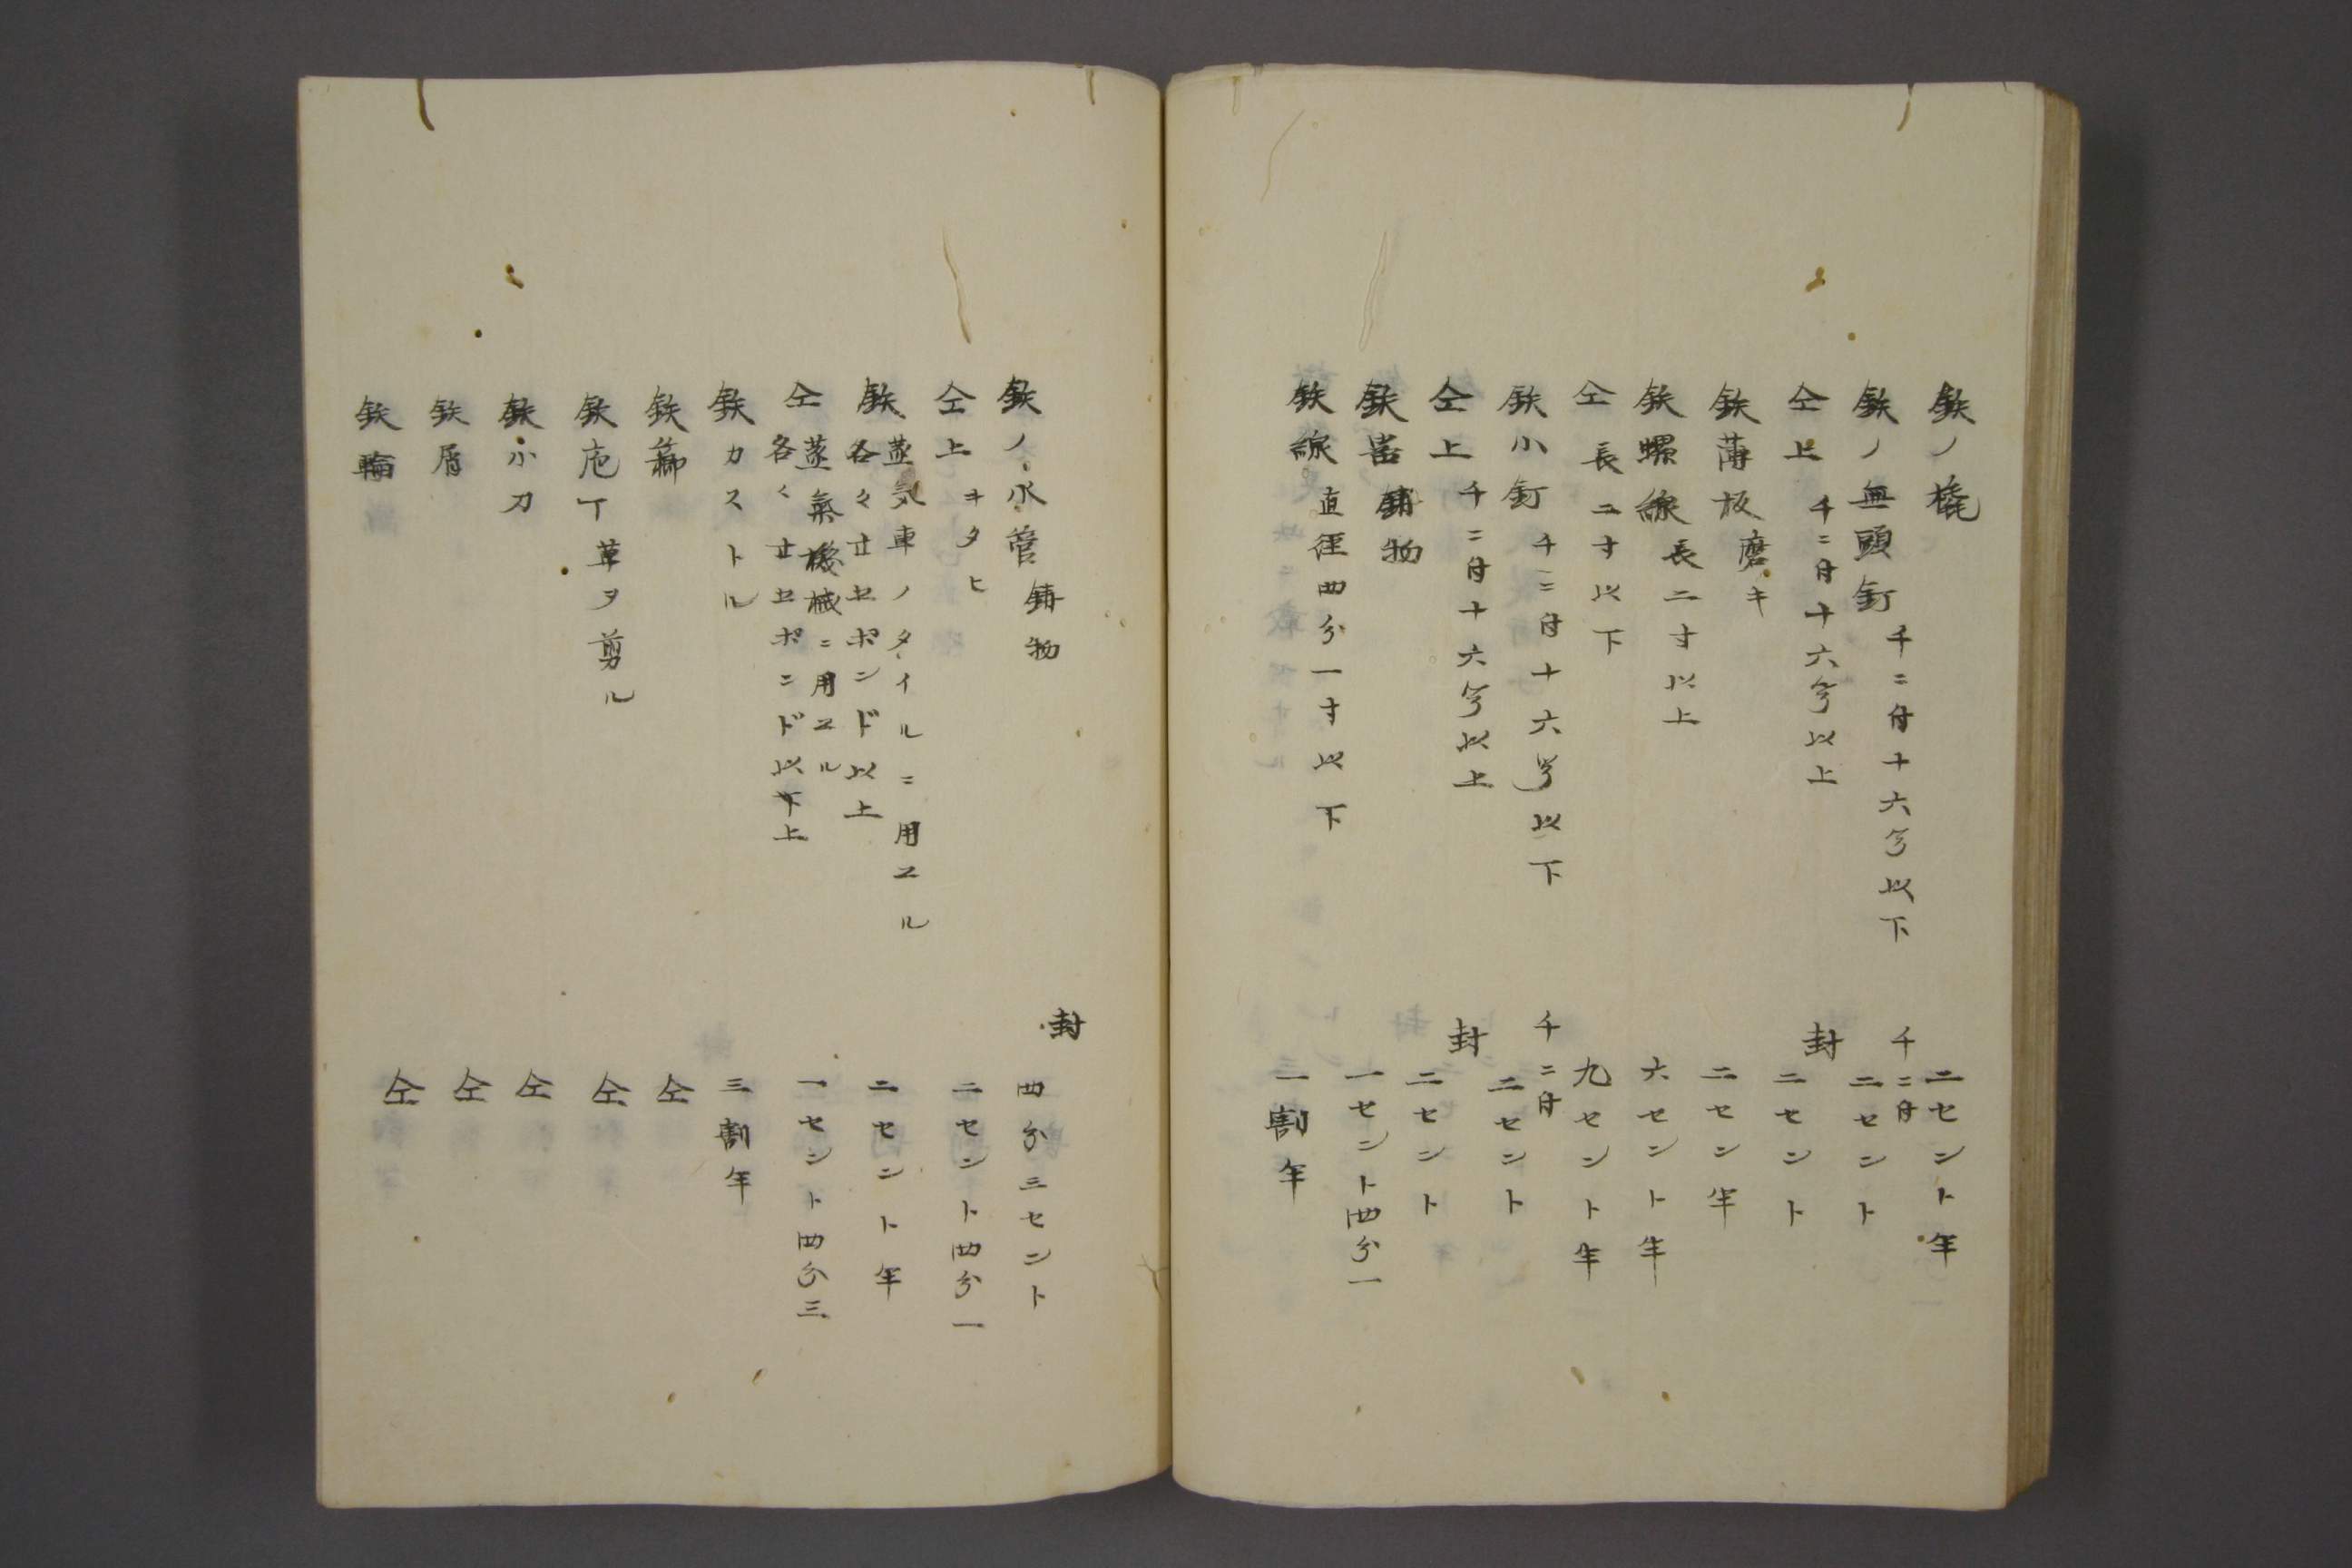 鉄ノ橇 二セント半
鉄ノ無頭釘 千ニ付十六号以下 千ニ付 二セント
仝上 千ニ付十六号以上 封 二セント
鉄薄板 磨キ 二セン半
鉄螺線 長二寸以上 六セント半
仝 長二寸以下 九セント半
鉄小釘 千ニ付十六号以下 千ニ付 二セント
仝上 千ニ付十六号以上 封 二セント
鉄 鋳物 一セント四分一
鉄線 直径四分一寸以下 一割半
鉄ノ水管 鋳物 封 四分三セント
仝上 キタヒ 二セント四分一
鉄 蒸気車ノタイルニ用ヱル
各々廿七ポンド以上 二セント半
仝 蒸氣機械ニ用ヱル
各〻廿七ポンド以下上 一セント四分三
鉄カストル 三割半
鉄 仝
鉄庖丁 草ヲ剪ル 仝
鉄小刀 仝
鉄屑 仝
鉄輪 仝